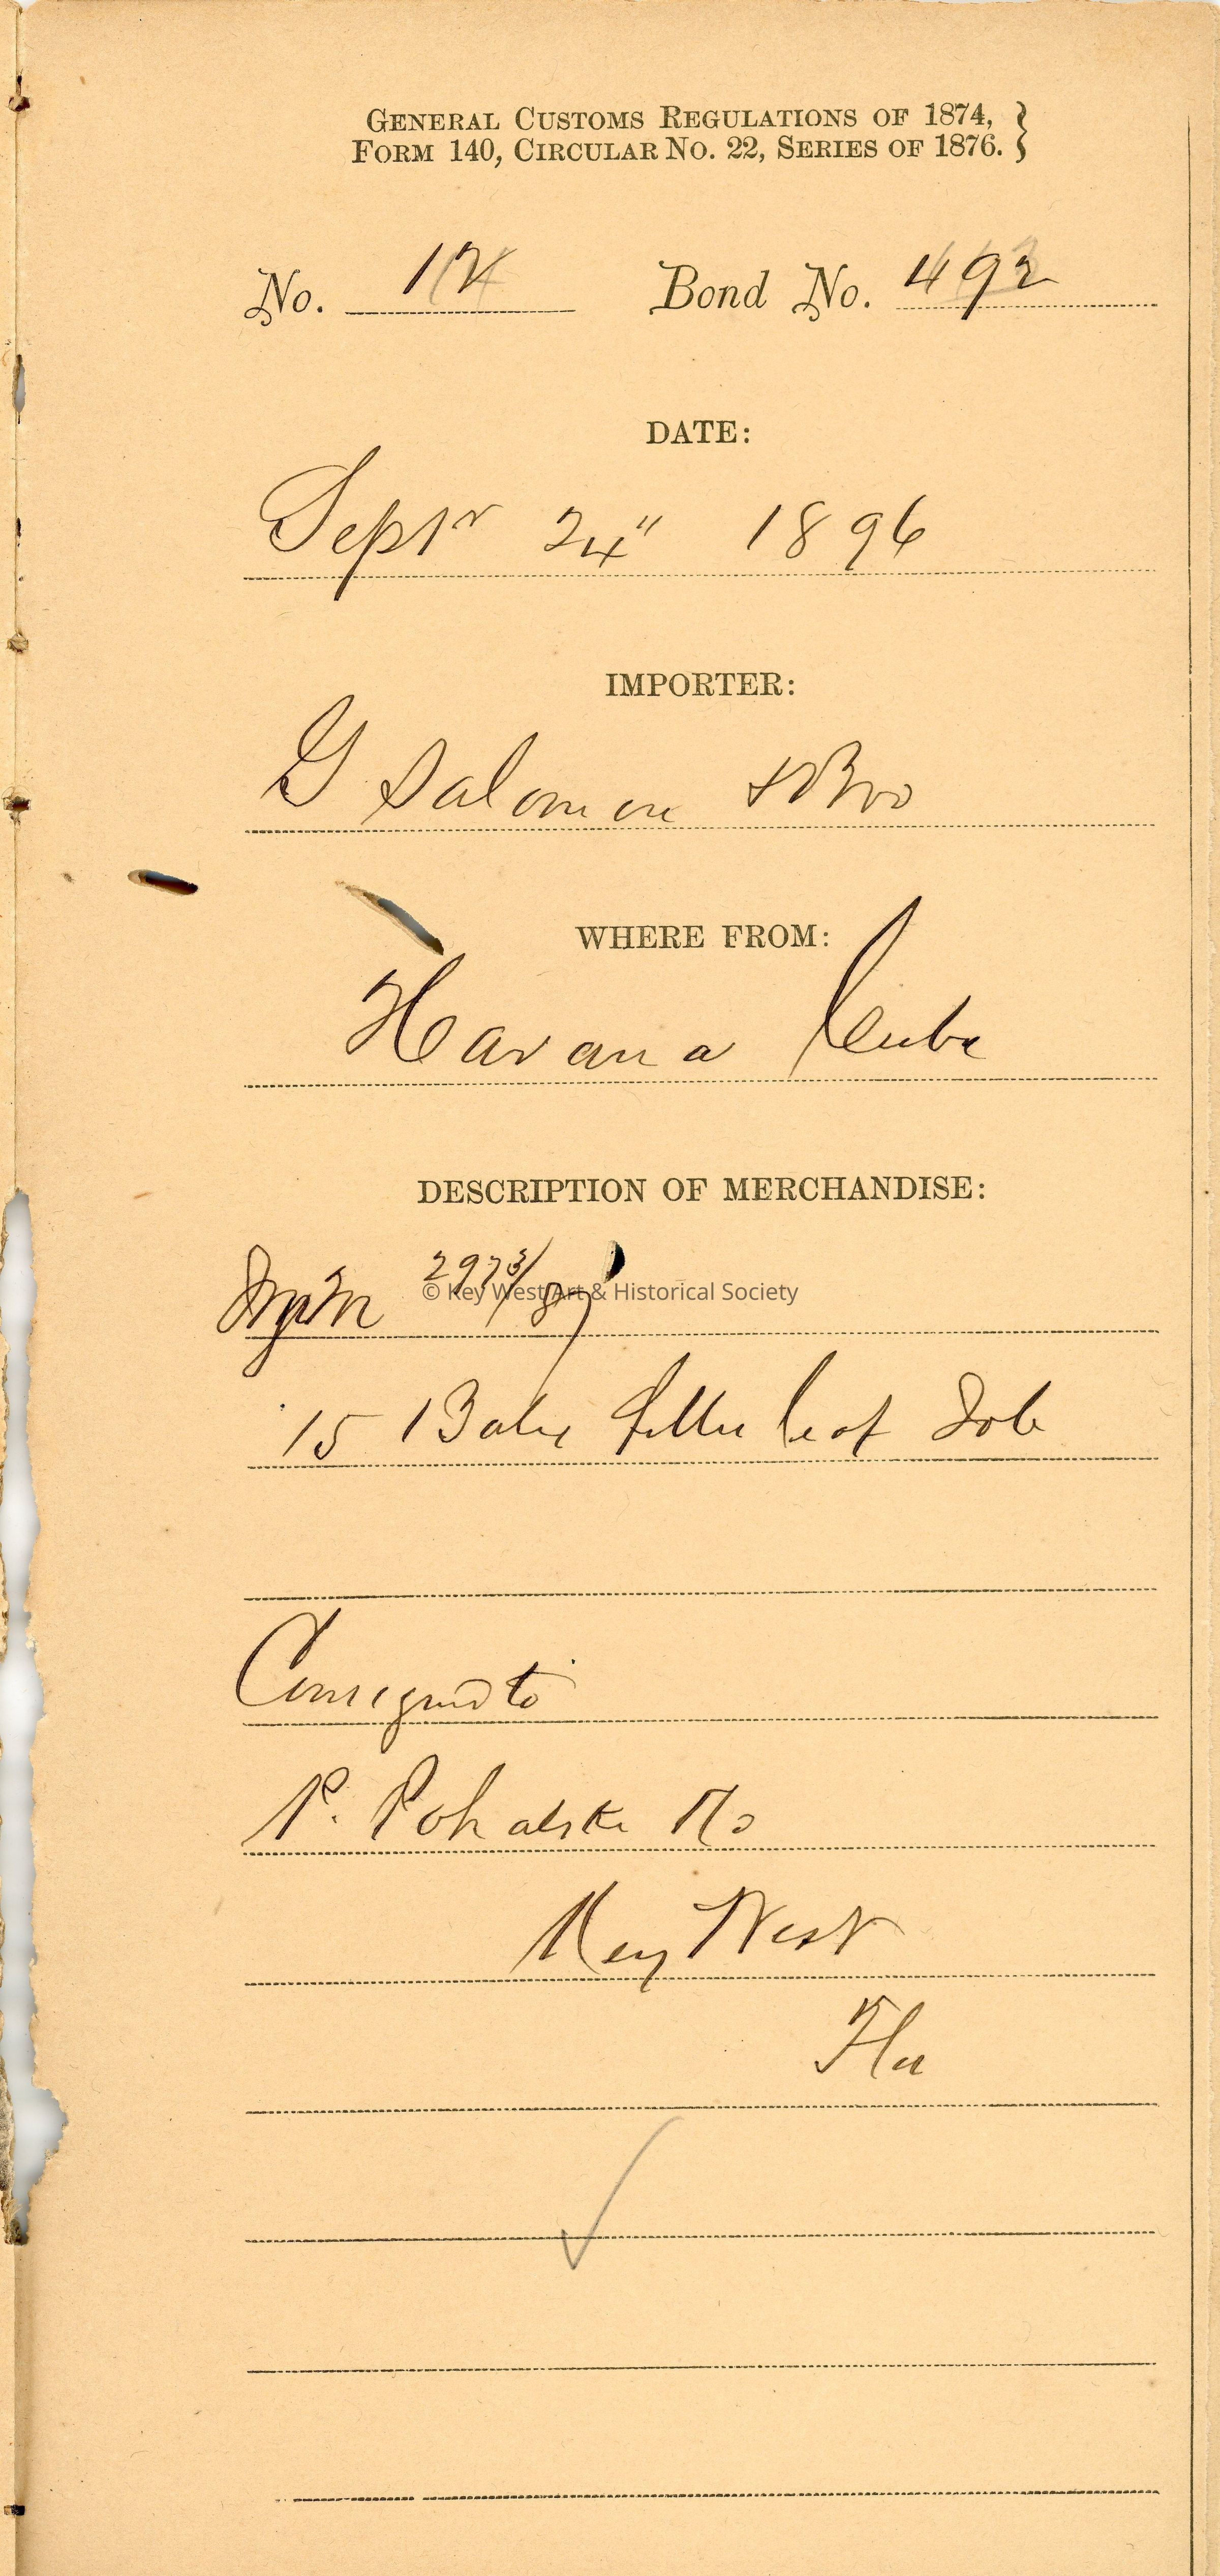 GENERAL CUSTOMS REGULATIONS OF 1874,
FORM 140, CIRCULAR NO. 22, SERIES OF 1876.
No. 12 Bond No. 492
DATE:
Septr 24" 1896
IMPORTER:
G Salomon & Bro
WHERE FROM:
Havana Cuba
DESCRIPTION OF MERCHANDISE:
2973/87
© Key West Art & Historical Society
15 Bales filler leaf Tob
Consigned to
P. Pohalski Co
Key West
Fla